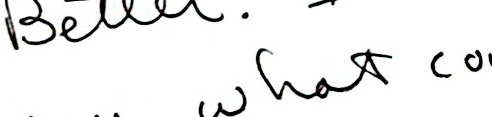 Better.
what co